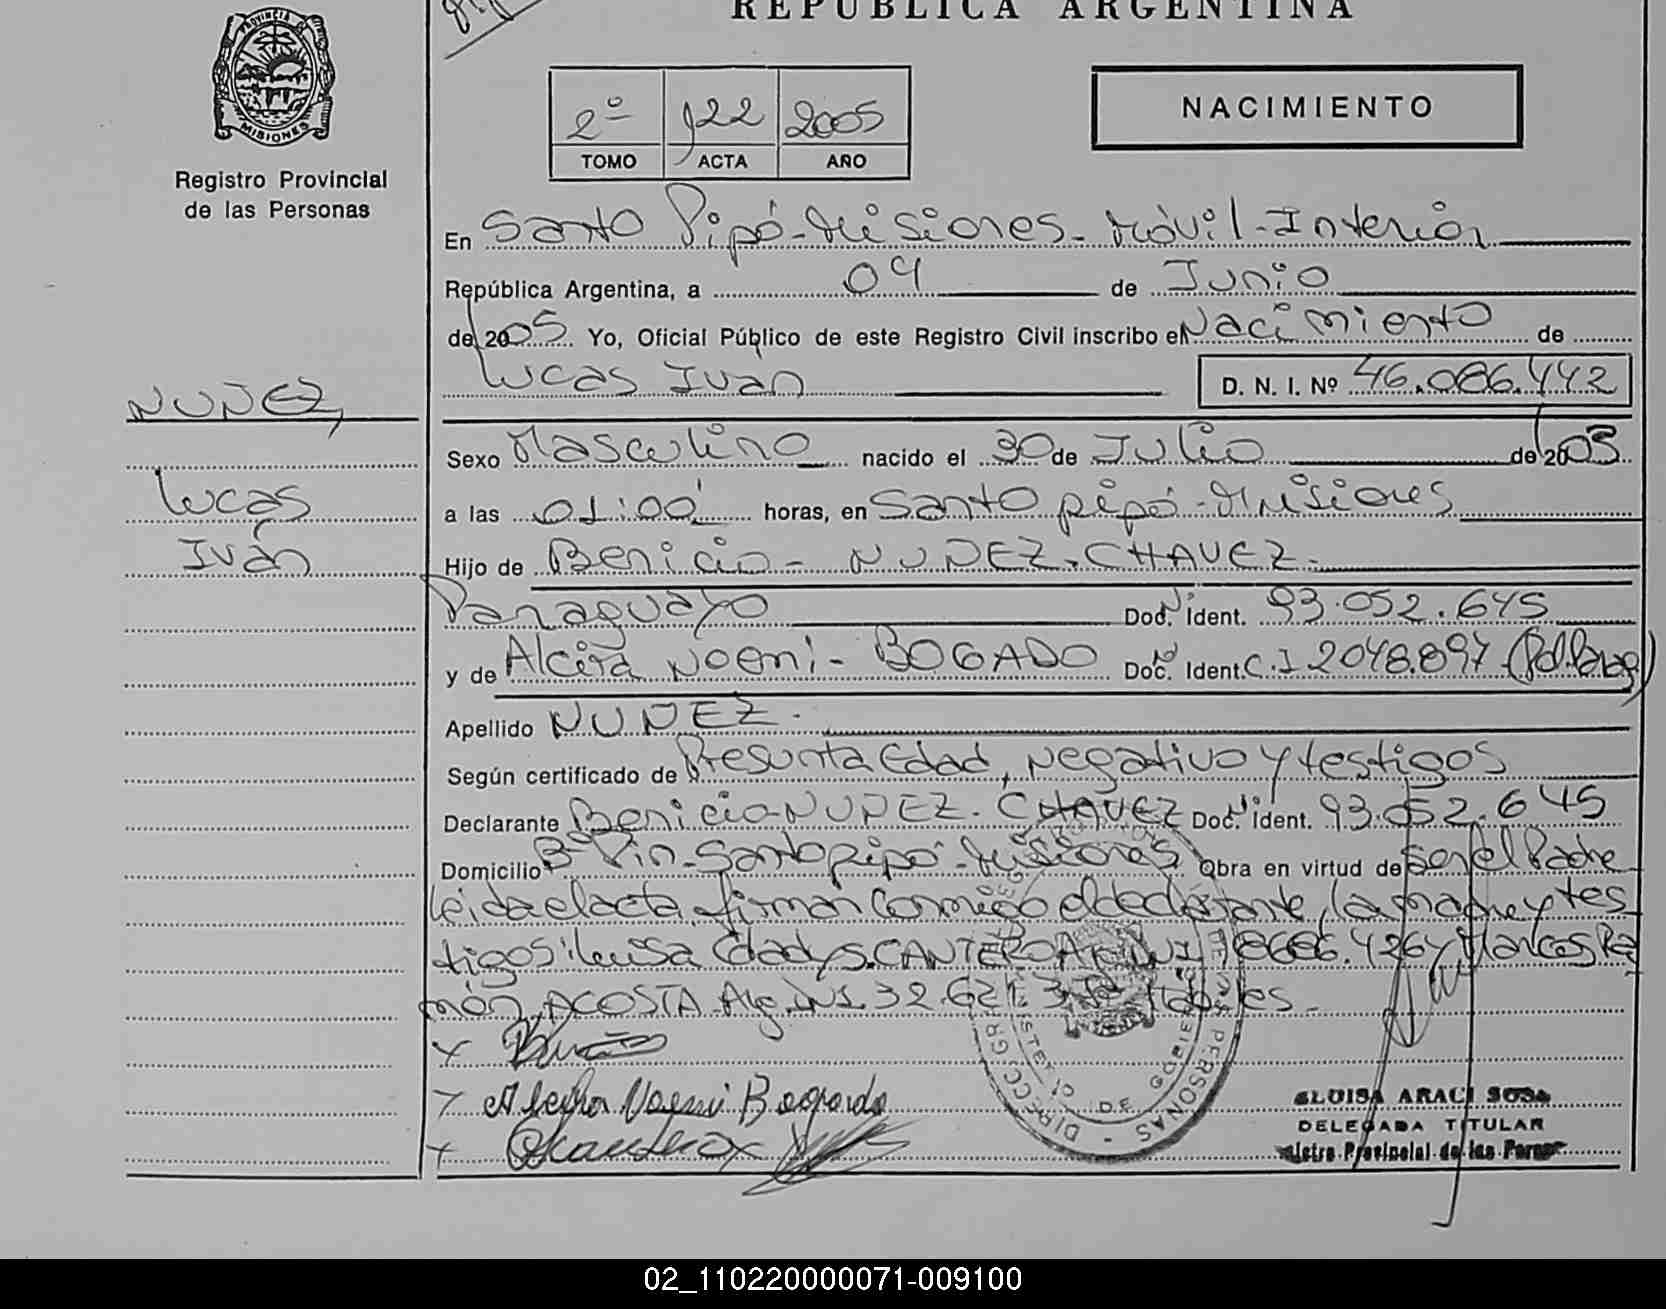 REPUBLICA ARGENTINA
PROVINCIA
MISIONES
Registro Provincial
de las Personas
2º 122 2005
TOMO ACTA AÑO
NACIMIENTO
En Santo Pipó-Misiones. Móvil-Interior
República Argentina, a 04 de Junio
de 2005 Yo, Oficial Público de este Registro Civil inscribo el Nacimiento de
Lucas Iván D. N. I. Nº 46.086.442
NUÑEZ,
Lucas
Iván
Sexo Masculino nacido el 30 de Julio de 2003
a las 01:00 horas, en Santo pipó-Misiones
Hijo de Benicio - NUÑEZ.CHAVEZ.
Paraguayo Doc. Ident. 93.052.645
y de Alcira Noemi- BOGADO Doc. Ident. C.I 2048.897
Apellido NUÑEZ.
Según certificado de Presunta Edad, negativo y testigos
Declarante Benicio-NUÑEZ. CHAVEZ Doc. Ident. 93.052.645
Domicilio Bº Pin-Santo pipó-Misiones Obra en virtud de ser el Padre
Leída el acta firman conmigo el declarante, la madre y tes
tigos: Luisa Gladys.CANTERO 426 y Marcos Ra
món ACOSTA Arg.DNI 32.621.
Bogado
ELUISA ARACI SOSA
DELEGADA TITULAR
Provincial de las
02_110220000071-009100